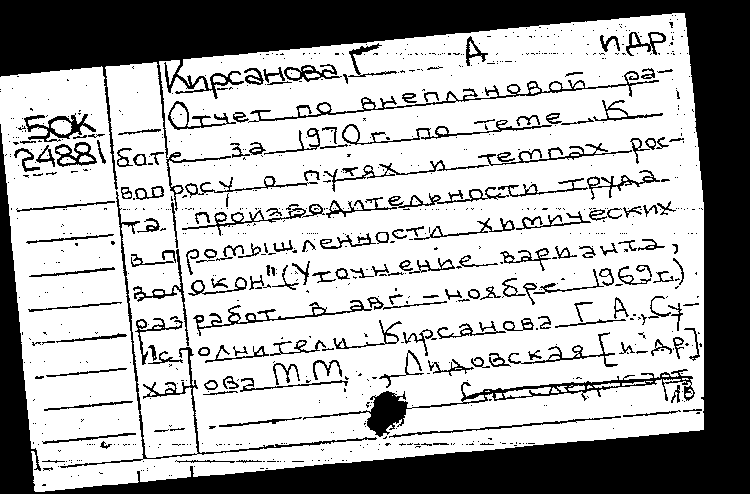 Кирсанова, Г А и др.
50К
24881
Отчет по внеплановой ра-
боте за 1970 г. по теме „К
вопросу о путях и темпах рос-
та производительности труда
в промышленности химических
волокон" (Уточнение варианта,
разработ. в авг. – ноябре 1969г.)
Исполнители: Кирсанова Г. А., Су-
ханова М.М., Лидовская [и др.]
См. след. карт.